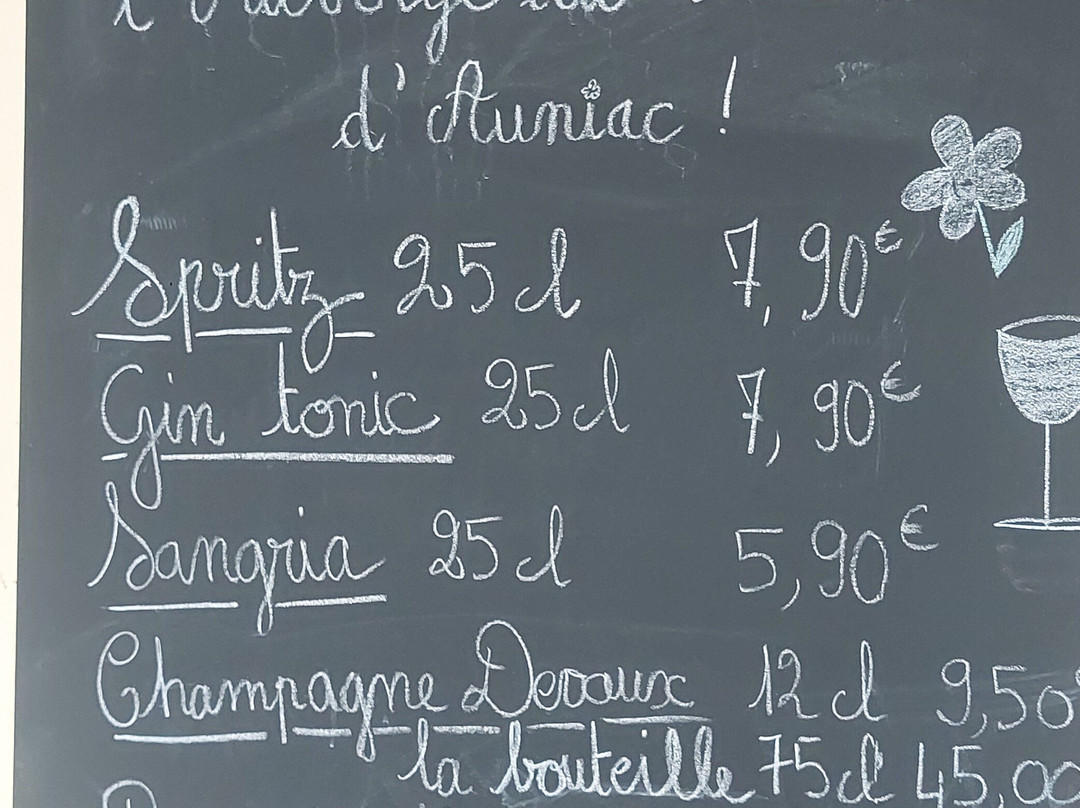 l'Auberge
d'Auniac !
Spritz 25 cl 7,90€
Gin tonic 25 cl 7,90€
Sangria 25 cl 5,90€
Champagne Devaux 12 cl 9,50
la bouteille 75 cl 45,00